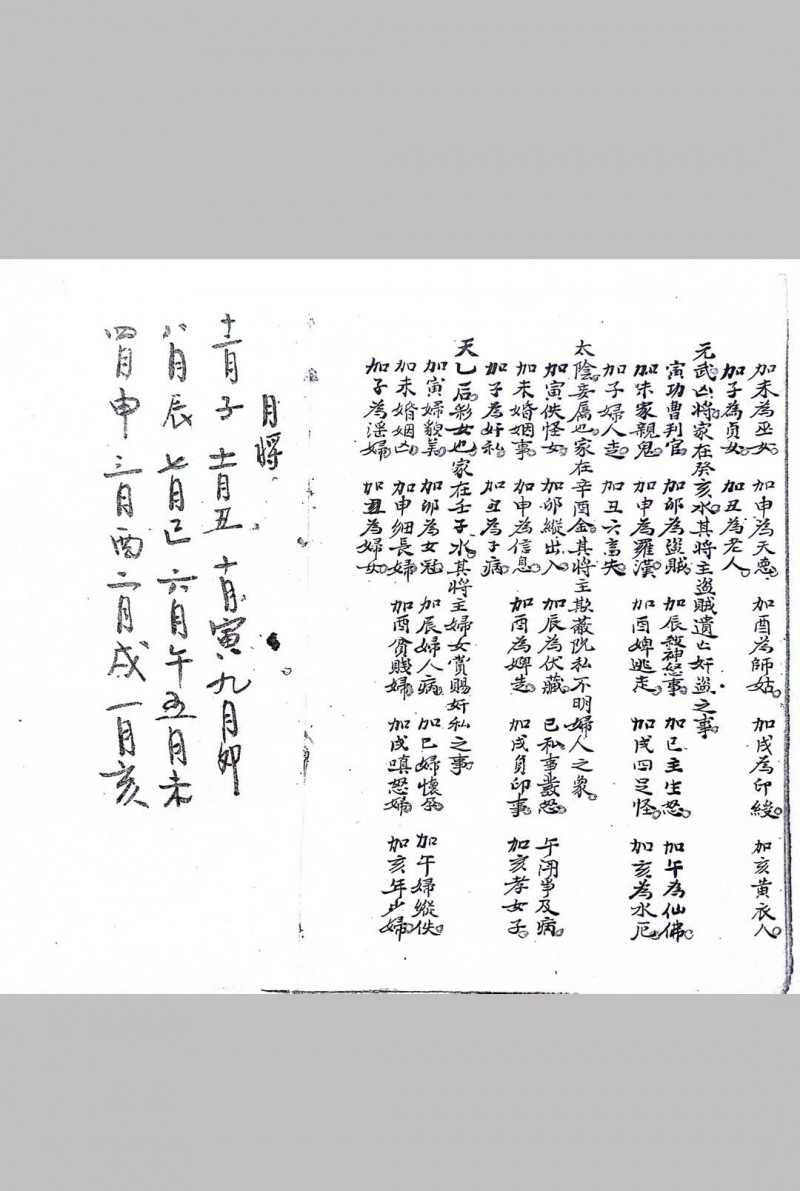 加未為巫女。加申為天恚。加酉為師姑。加戌為印綬。加亥黃衣人
加子為貞女。加丑為老人。
元武凶將家在癸亥水。其將主盜賊遺亡奸盜之事。
寅功曹判官。加卯為盜賊。加辰殺神怒事。加巳主生怒。加午為仙佛。
加未家親鬼。加申為羅漢。加酉婢逃走。加戌四足怪。加亥為水厄。
加子婦人走。加丑六畜失。
太陰妾屬也。家在辛酉金。其將主欺蔽阮私不明婦人之象。
加寅佚怪女。加卯縱出入。加辰為伏藏。巳私事發怒。午淨爭及病。
加未婚姻事。加申為信息。加酉為婢走。加戌負印事。加亥孝女子。
加子為奸私。加丑為子病。
天乙后彩女也。家在壬子水。其將主婦女賞賜奸私之事。
加寅婦貌美。加卯為女冠。加辰婦人病。加巳婦懷孕。加午婦縱佚。
加未婚姻凶。加申細長婦。加酉貧賤婦。加戌嗔怒婦。加亥年少婦。
加子為淫婦。加丑為婦女。
月將
十二月子 十一月丑 十月寅 九月卯
八月辰 七月巳 六月午 五月未
四月申 三月酉 二月戌 一月亥